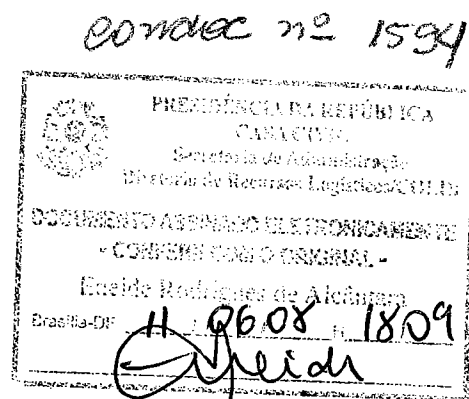 condec nº 1594
PRESIDÊNCIA DA REPÚBLICA
CASA CIVIL
Secretaria de Administração
Diretoria de Recursos Logísticos/COLDI
DOCUMENTO ASSINADO ELETRONICAMENTE
- CONFERE COM O ORIGINAL -
Eneide Rodrigues de Alcântara
Brasília-DF 11 06 08 H 1809
Eneide